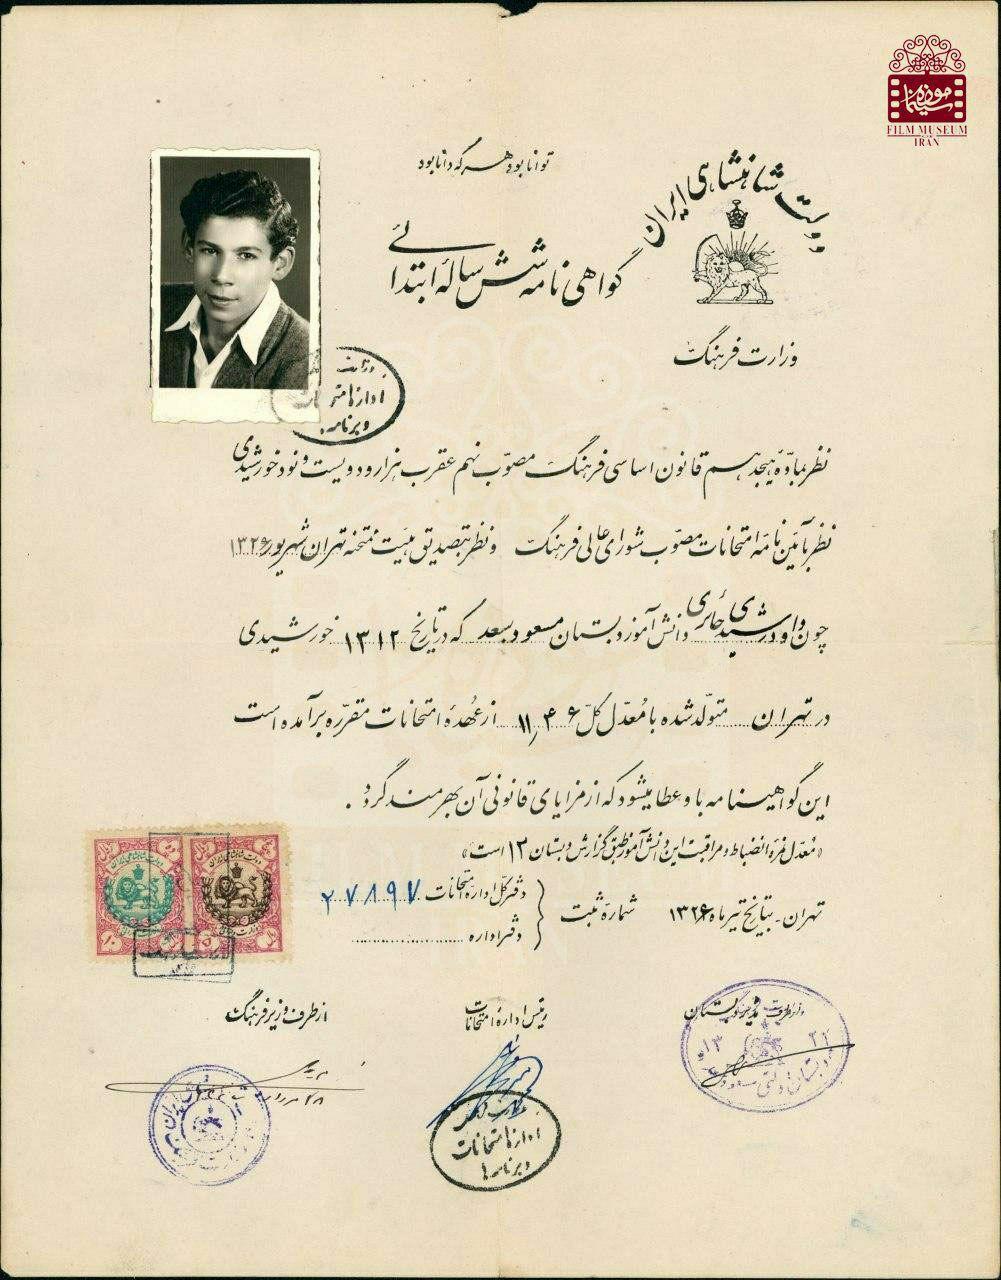 موزه سینما
FILM MUSEUM
IRAN
توانا بود هر که دانا بود
دولت شاهنشاهی ایران
گواهی نامه شش ساله ابتدائی
وزارت فرهنگ
وزارت
اداره امتحانات
و برنامه
نظر بمادّه هیجدهم قانون اساسی فرهنگ مصوّب نهم عقرب هزار و دویست و نود خورشیدی
نظر بآئین نامه امتحانات مصوّب شورای عالی فرهنگ و نظر بتصدیق هیئت ممتحنه تهران شهریور ۱۳۲۶
چون داود رشیدی حائری دانش آموز دبستان مسعود سعد که در تاریخ ۱۳۱۲ خورشیدی
در تهران متولّد شده با مُعدّل کلّ ۱۱٫۴۶ از عُهدهٔ امتحانات مقرّره برآمده است
این گواهینامه باو عطا میشود که از مزایای قانونی آن بهره‌مند گردد.
«مُعدّل نمرهٔ انضباط و مراقبت این دانش آموز طبق گزارش دبستان ۱۳ است»
تهران - بتاریخ تیر ماه ۱۳۲۶ شماره ثبت
دفتر کل اداره امتحانات ۲۷۸۹۷
دفتر اداره
مدیر دبستان
رئیس ادارهٔ امتحانات
از طرف وزیر فرهنگ
اداره امتحانات
و برنامه ها